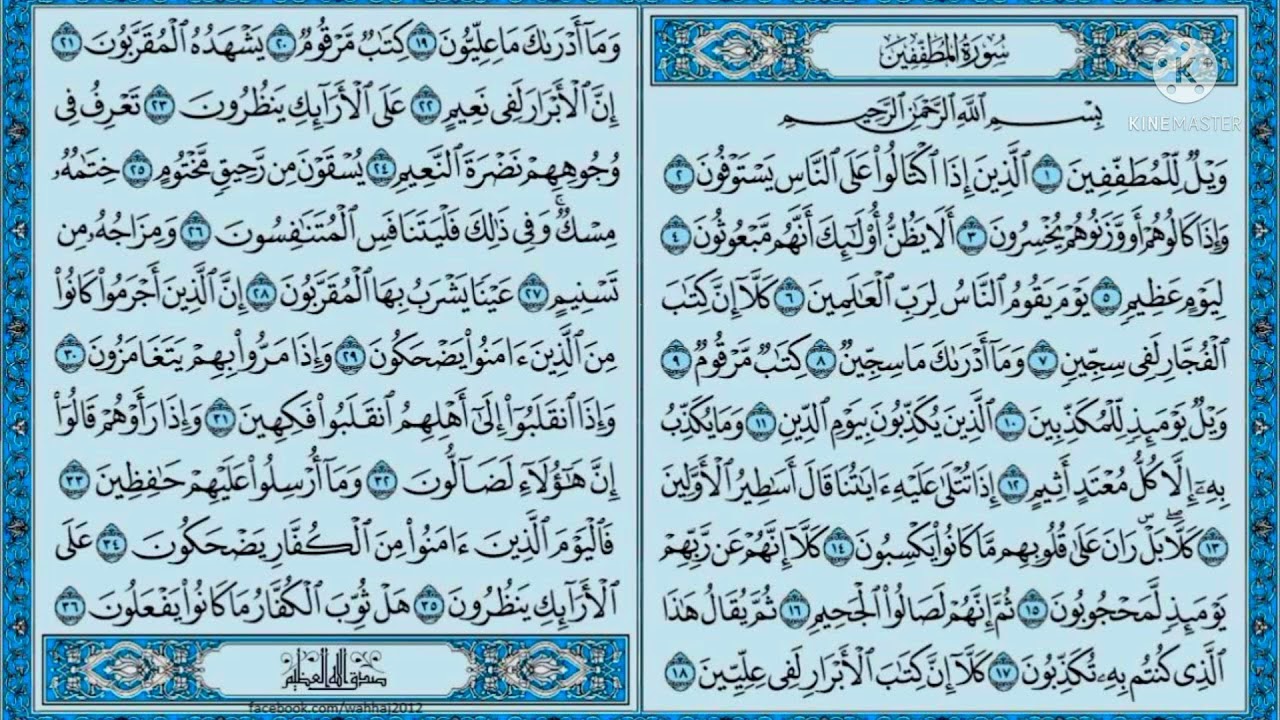 سُورَةُ المُطَفِّفِينَ
بِسْمِ اللَّهِ الرَّحْمَٰنِ الرَّحِيمِ
وَيْلٌ لِّلْمُطَفِّفِينَ ١ ٱلَّذِينَ إِذَا ٱكْتَالُوا۟ عَلَى ٱلنَّاسِ يَسْتَوْفُونَ ٢
وَإِذَا كَالُوهُمْ أَو وَّزَنُوهُمْ يُخْسِرُونَ ٣ أَلَا يَظُنُّ أُو۟لَٰٓئِكَ أَنَّهُم مَّبْعُوثُونَ ٤
لِيَوْمٍ عَظِيمٍ ٥ يَوْمَ يَقُومُ ٱلنَّاسُ لِرَبِّ ٱلْعَٰلَمِينَ ٦ كَلَّآ إِنَّ كِتَٰبَ
ٱلْفُجَّارِ لَفِى سِجِّينٍ ٧ وَمَآ أَدْرَىٰكَ مَا سِجِّينٌ ٨ كِتَٰبٌ مَّرْقُومٌ ٩
وَيْلٌ يَوْمَئِذٍ لِّلْمُكَذِّبِينَ ١٠ ٱلَّذِينَ يُكَذِّبُونَ بِيَوْمِ ٱلدِّينِ ١١ وَمَا يُكَذِّبُ
بِهِۦٓ إِلَّا كُلُّ مُعْتَدٍ أَثِيمٍ ١٢ إِذَا تُتْلَىٰ عَلَيْهِ ءَايَٰتُنَا قَالَ أَسَٰطِيرُ ٱلْأَوَّلِينَ
١٣ كَلَّا ۖ بَلْ ۜ رَانَ عَلَىٰ قُلُوبِهِم مَّا كَانُوا۟ يَكْسِبُونَ ١٤ كَلَّآ إِنَّهُمْ عَن رَّبِّهِمْ
يَوْمَئِذٍ لَّمَحْجُوبُونَ ١٥ ثُمَّ إِنَّهُمْ لَصَالُوا۟ ٱلْجَحِيمِ ١٦ ثُمَّ يُقَالُ هَٰذَا
ٱلَّذِى كُنتُم بِهِۦ تُكَذِّبُونَ ١٧ كَلَّآ إِنَّ كِتَٰبَ ٱلْأَبْرَارِ لَفِى عِلِّيِّينَ ١٨
وَمَآ أَدْرَىٰكَ مَا عِلِّيُّونَ ١٩ كِتَٰبٌ مَّرْقُومٌ ٢٠ يَشْهَدُهُ ٱلْمُقَرَّبُونَ ٢١
إِنَّ ٱلْأَبْرَارَ لَفِى نَعِيمٍ ٢٢ عَلَى ٱلْأَرَآئِكِ يَنظُرُونَ ٢٣ تَعْرِفُ فِى
وُجُوهِهِمْ نَضْرَةَ ٱلنَّعِيمِ ٢٤ يُسْقَوْنَ مِن رَّحِيقٍ مَّخْتُومٍ ٢٥ خِتَٰمُهُۥ
مِسْكٌ ۚ وَفِى ذَٰلِكَ فَلْيَتَنَافَسِ ٱلْمُتَنَٰفِسُونَ ٢٦ وَمِزَاجُهُۥ مِن
تَسْنِيمٍ ٢٧ عَيْنًا يَشْرَبُ بِهَا ٱلْمُقَرَّبُونَ ٢٨ إِنَّ ٱلَّذِينَ أَجْرَمُوا۟ كَانُوا۟
مِنَ ٱلَّذِينَ ءَامَنُوا۟ يَضْحَكُونَ ٢٩ وَإِذَا مَرُّوا۟ بِهِمْ يَتَغَامَزُونَ ٣٠
وَإِذَا ٱنقَلَبُوٓا۟ إِلَىٰٓ أَهْلِهِمُ ٱنقَلَبُوا۟ فَكِهِينَ ٣١ وَإِذَا رَأَوْهُمْ قَالُوٓا۟
إِنَّ هَٰٓؤُلَآءِ لَضَآلُّونَ ٣٢ وَمَآ أُرْسِلُوا۟ عَلَيْهِمْ حَٰفِظِينَ ٣٣
فَٱلْيَوْمَ ٱلَّذِينَ ءَامَنُوا۟ مِنَ ٱلْكُفَّارِ يَضْحَكُونَ ٣٤ عَلَى
ٱلْأَرَآئِكِ يَنظُرُونَ ٣٥ هَلْ ثُوِّبَ ٱلْكُفَّارُ مَا كَانُوا۟ يَفْعَلُونَ ٣٦
صدق الله العظيم
facebook.com/wahhaj2012
K
KINEMASTER